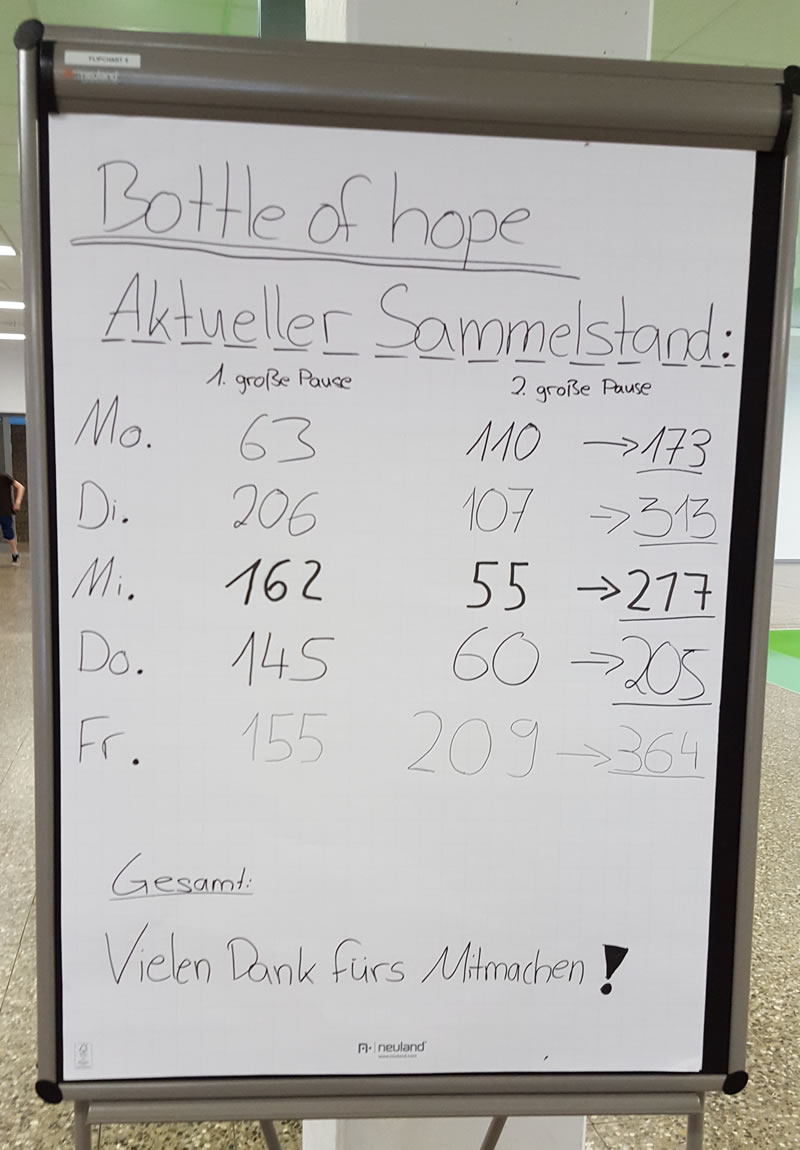 FLIPCHART 5
neuland
Bottle of hope
Aktueller Sammelstand:
1. große Pause 2. große Pause
Mo. 63 110 → 173
Di. 206 107 → 313
Mi. 162 55 → 217
Do. 145 60 → 205
Fr. 155 209 → 364
Gesamt:
Vielen Dank fürs Mitmachen!
neuland